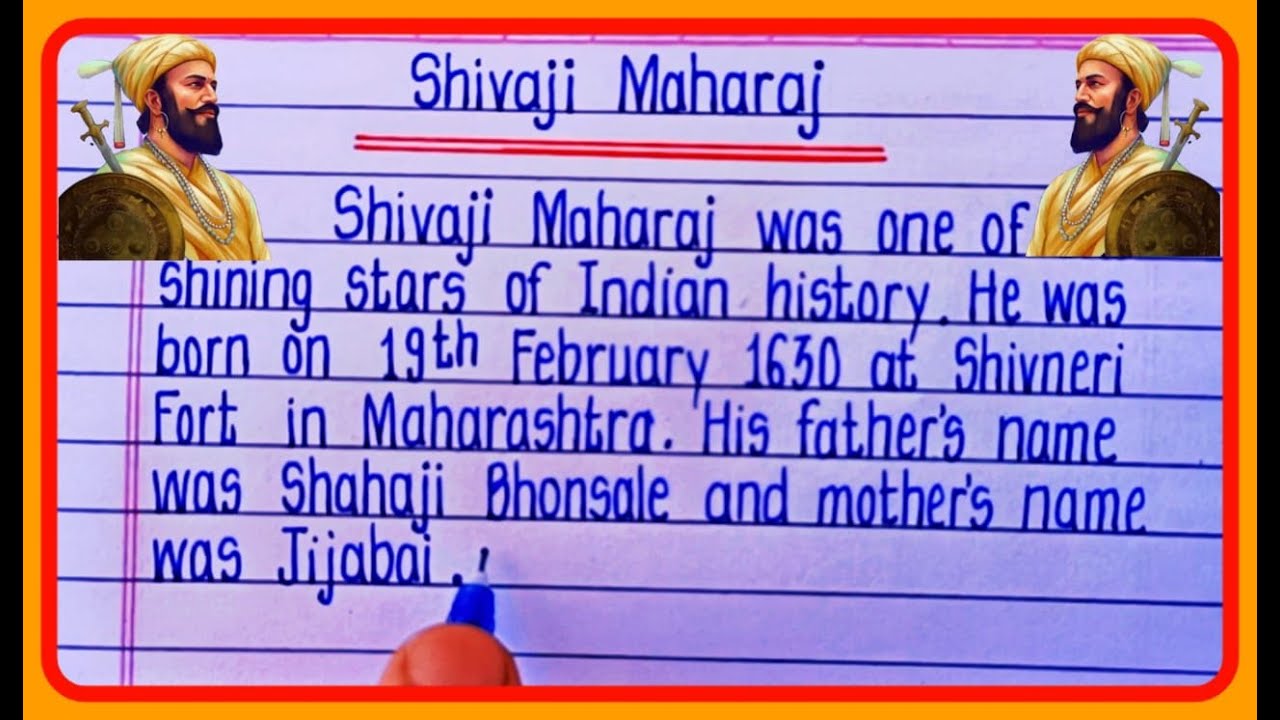 Shivaji Maharaj
Shivaji Maharaj was one of
shining stars of Indian history. He was
born on 19th February 1630 at Shivneri
Fort in Maharashtra. His father's name
was Shahaji Bhonsale and mother's name
was Jijabai.